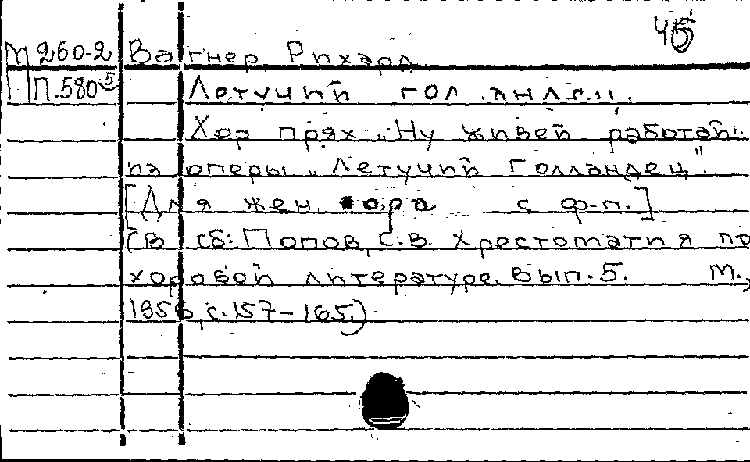 45
М 260-2 Вагнер Рихард
П.580-5 Летучий голландец.
Хор прях „Ну живей работай"
из оперы „Летучий Голландец".
[Для жен. хора с ф-п.]
(В сб: Попов, С.В. Хрестоматия по
хоровой литературе. Вып.5. М.,
1956, с.157-165.)